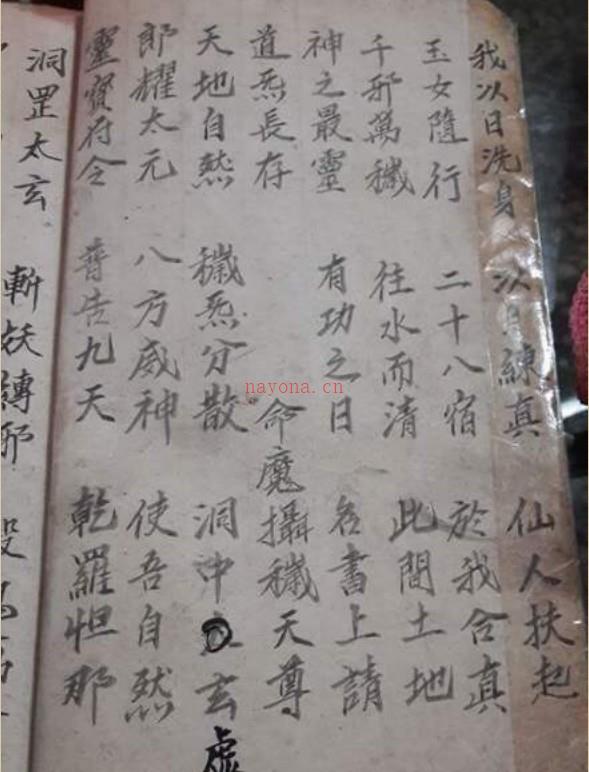 我以日洗身 以月練真 仙人扶起
玉女隨行 二十八宿 於我合真
千邪萬穢 往水而清 此間土地
神之最靈 有功之日 名書上請
道炁長存 命魔攝穢天尊
天地自然 穢炁分散 洞沖玄虛
郎耀太元 八方威神 使吾自然
靈寶符令 普告九天 乾羅怛那
洞罡太玄 斬妖縛邪
nayona.cn